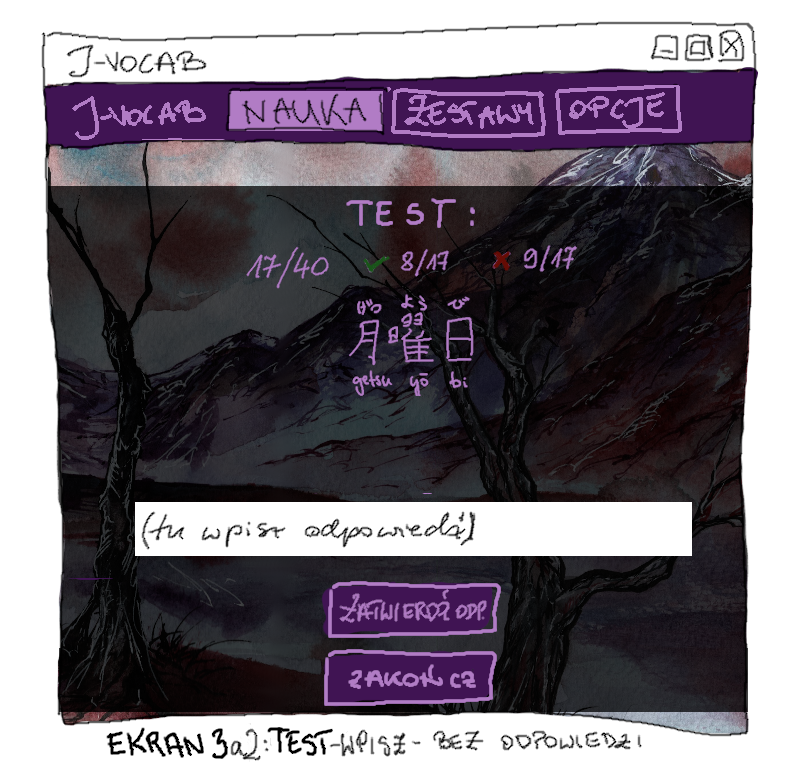 J-VOCAB
J-VOCAB NAUKA ZESTAWY OPCJE
TEST:
17/40 ✓ 8/17 ✗ 9/17
げつ よう び
月曜日
getsu yō bi
(tu wpisz odpowiedź)
ZATWIERDŹ ODP.
ZAKOŃCZ
EKRAN 3a2: TEST-WPISZ - BEZ ODPOWIEDZI